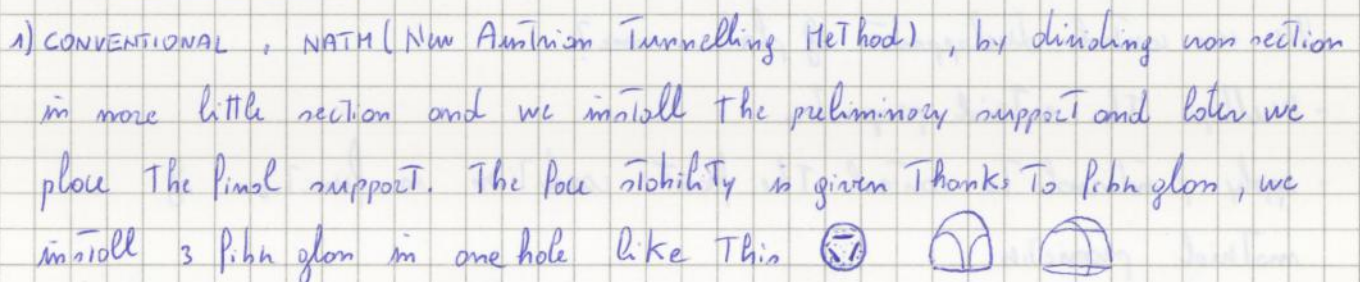 1) CONVENTIONAL, NATM (New Austrian Tunnelling Method), by dividing von section
in more little section and we install the preliminary support and later we
place the final support. The face stability is given thanks to fiber glass, we
install 3 fiber glass in one hole like this